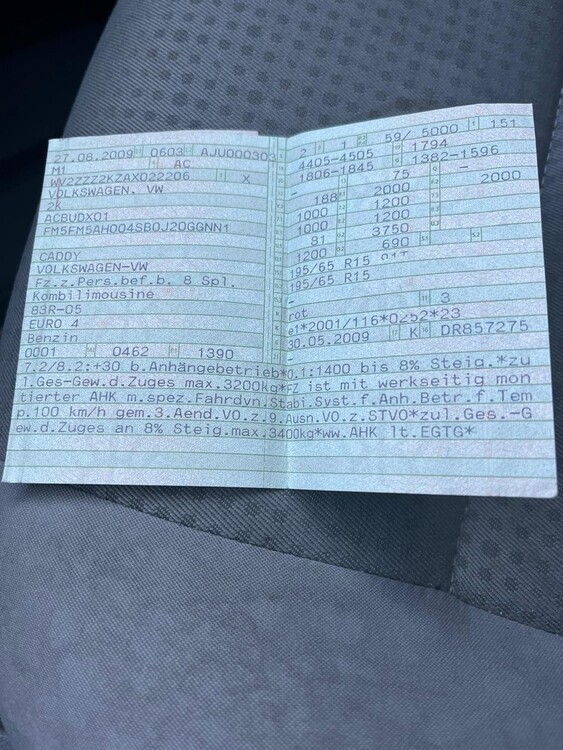 27.08.2009 0603 AJU000303
M1 AC
WV2ZZZ2KZAX022206 X
VOLKSWAGEN, VW
2K
ACBUDX01
FM5FM5AH004SB0J20GGNN1
CADDY
VOLKSWAGEN-VW
Fz.z.Pers.bef.b. 8 Spl.
Kombilimousine
83R-05
EURO 4
Benzin
0001 0462 1390
2 1 59/ 5000 151
4405-4505 1794
1806-1845 1382-1596
- 75 -
188 2000 2000
1000 1200
1000 1200
81 3750
1200 690
195/65 R15 91T
195/65 R15
-
rot 3
e1*2001/116*0252*23
30.05.2009 K DR857275
7.2/8.2:+30 b.Anhängebetrieb*0.1:1400 bis 8% Steig.*zu
l.Ges-Gew.d.Zuges max.3200kg*FZ ist mit werkseitig mon
tierter AHK m.spez.Fahrdyn.Stabi.Syst.f.Anh.Betr.f.Tem
p.100 km/h gem.3.Aend.VO.z.9.Ausn.VO.z.STVO*zul.Ges.-G
ew.d.Zuges an 8% Steig.max.3400kg*ww.AHK lt.EGTG*